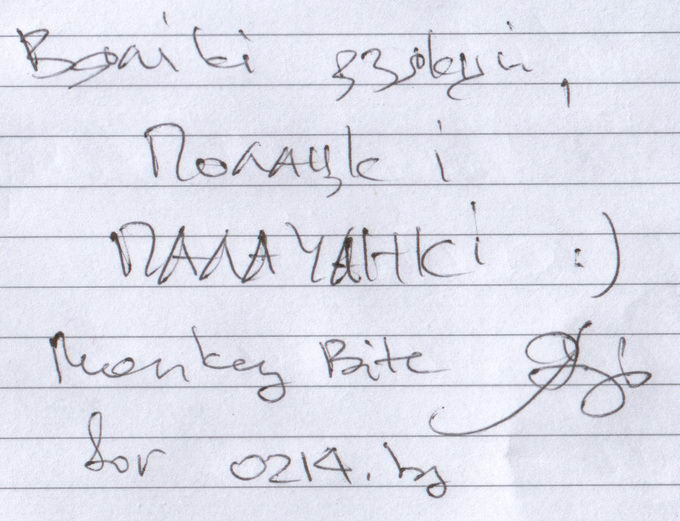 Вялікі дзякуй,
Полацк і
ПАЛАЧАНКІ :)
Monkey Bite
for 0214.by